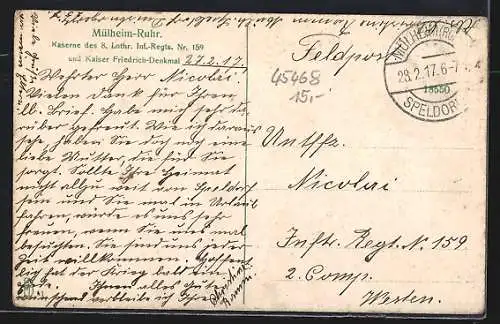 Mülheim-Ruhr.
Kaserne des 8. Lothr. Inf.-Regts. Nr. 159
und Kaiser Friedrich-Denkmal 27.2.17.
Wehrter Herr Nicolai.
Vielen Dank für Ihren
ll. Brief. Habe mich sehr da-
rüber gefreut. Wie ich daraus
sehe haben Sie doch noch eine
liebe Mutter, die für Sie
sorgt. Sollte Ihre Heimat
nicht allzu weit von Speldorf
sein und Sie mal in Urlaub
fahren, würde es uns sehr
freuen, wenn Sie uns mal
besuchten. Sie sind uns jeder
Zeit willkommen. Hoffent-
lich hat der Krieg bald ein
Ende. Ihnen alles Gute
wünschend verbleibe ich Ihre
Feldpost
45468
15,-
MÜLHEIM
28.2.17.6-7
SPELDORF
Untffz.
Nicolai
Inftr. Regt. № 159
2. Comp.
Westen.